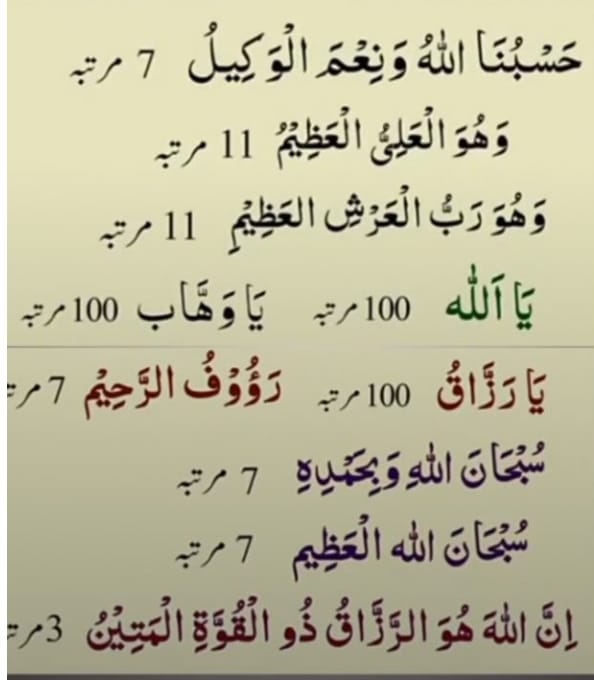 حَسْبُنَا اللهُ وَنِعْمَ الْوَكِيلُ 7 مرتبہ
وَهُوَ الْعَلِيُّ الْعَظِيْمُ 11 مرتبہ
وَهُوَ رَبُّ الْعَرْشِ العَظِيْمِ 11 مرتبہ
يَا اَللّٰه 100 مرتبہ يَا وَهَّاب 100 مرتبہ
يَا رَزَّاقُ 100 مرتبہ رَؤُوْفُ الرَّحِيْم 7 مرتبہ
سُبْحَانَ اللهِ وَبِحَمْدِهِ 7 مرتبہ
سُبْحَانَ الله الْعَظِيم 7 مرتبہ
اِنَّ اللهَ هُوَ الرَّزَّاقُ ذُو الْقُوَّةِ الْمَتِيْنُ 3 مرتبہ